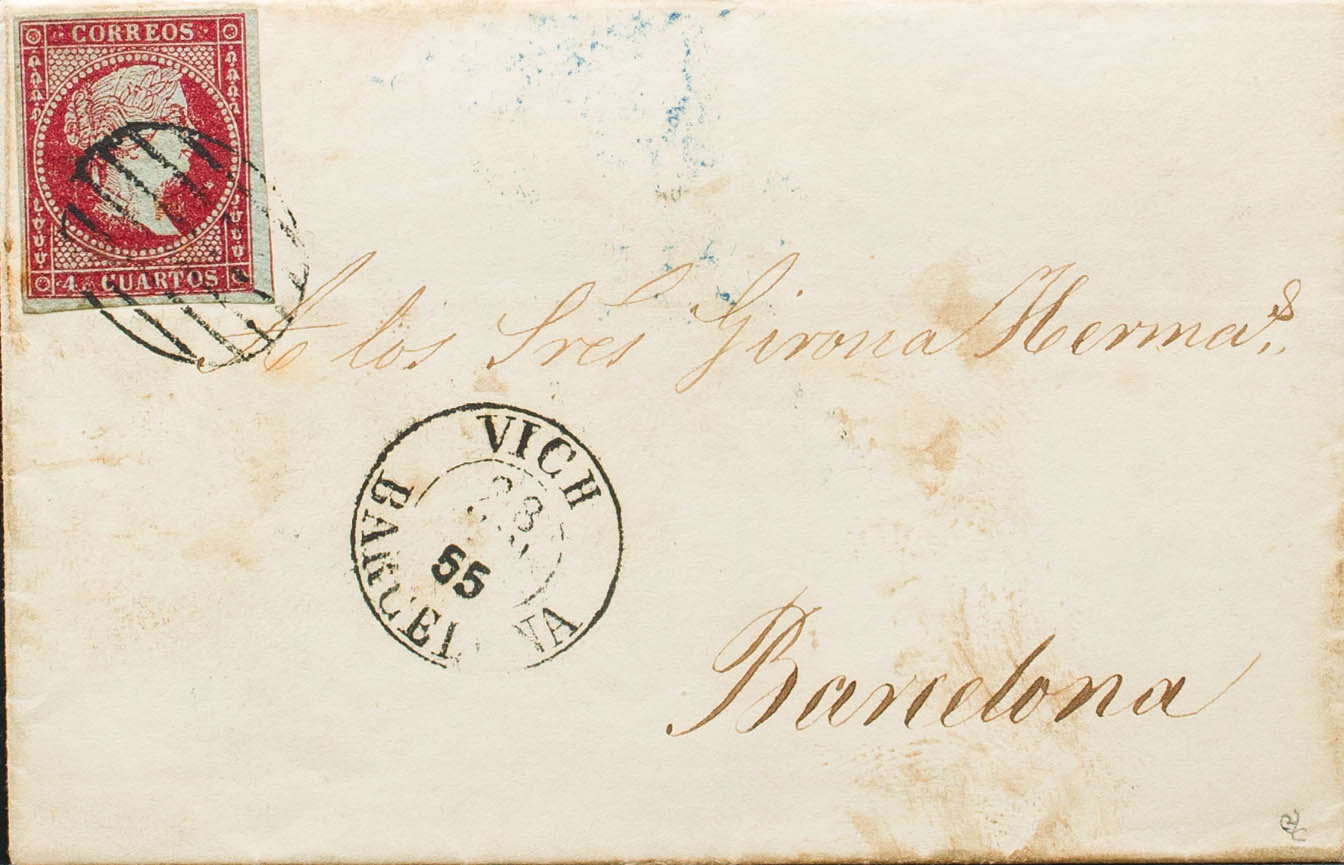 CORREOS
4 CUARTOS
A los Sres Girona Hermas
VICH
28
55
BARCELONA
Barcelona